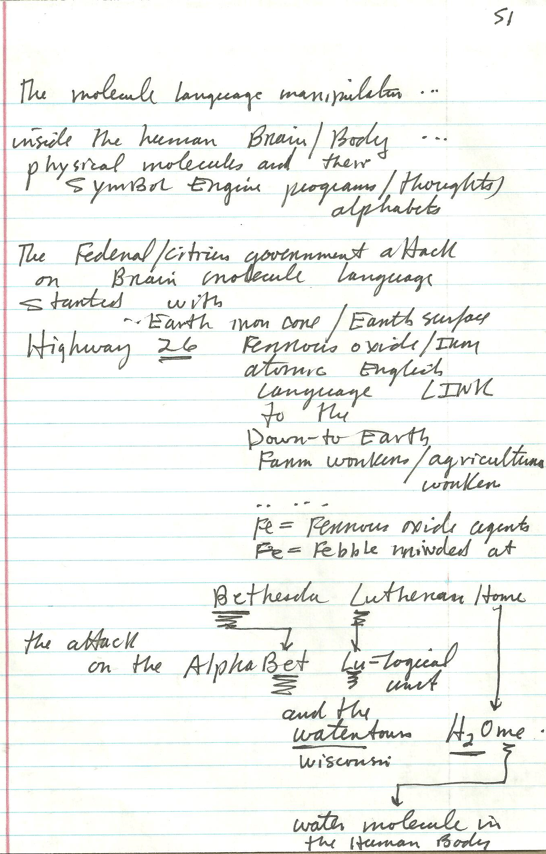 51
The molecule language manipulator ...
inside the human Brain/Body ...
physical molecules and their
Symbol Engine programs/thoughts/
alphabets
The Federal/citrius government attack
on Brain molecule language
started with
... Earth iron core/Earth surface
Highway 26 Ferrous oxide/Iron
atomic English
Language LINK
to the
Down-to Earth
Farm workers/agricultura
worker
.. ...
Fe = Ferrous oxide agents
Fe = Febble minded at
Bethesda Lutheran Home
the attack
on the AlphaBet Lu-logical
unit
and the
watertown H2Ome .
Wisconsin
water molecule in
the Human Body